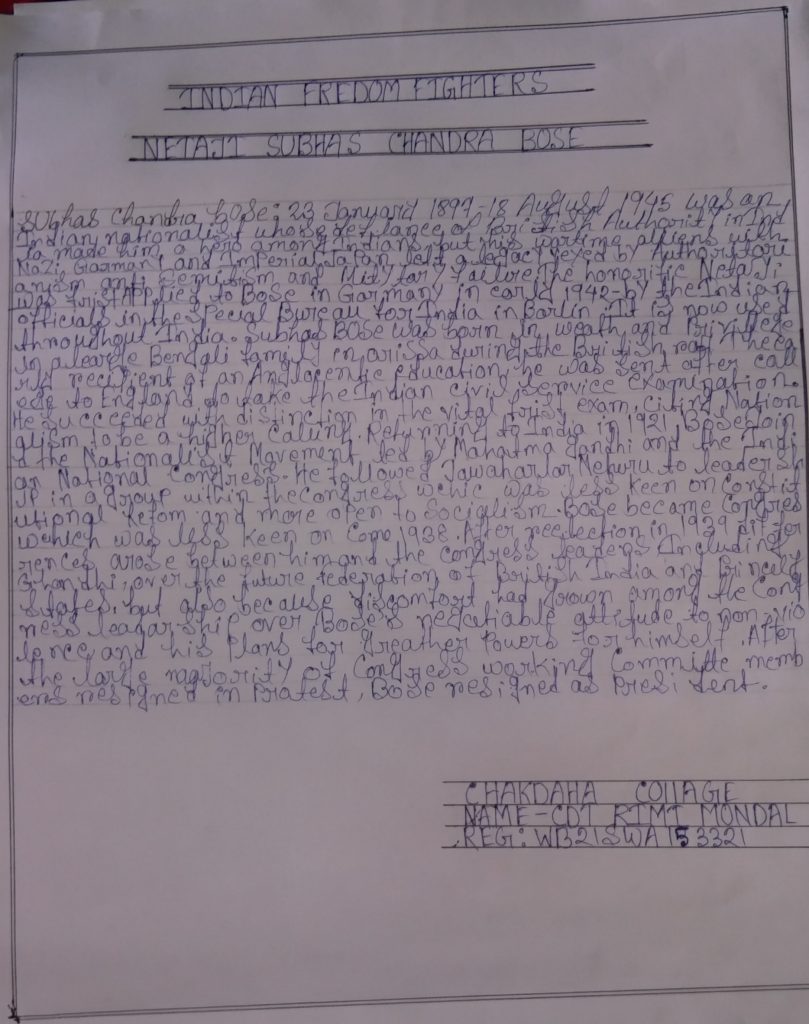 INDIAN FREDOM FIGHTERS
NETAJI SUBHAS CHANDRA BOSE
Subhas Chandra Bose: 23 Januard 1897-18 August 1945 was an
Indian nationalist whose defiance of British Authority in Ind
ia made him a hero among Indians, but his wartime aliens with
Nazi Garman and Imperial Japan left a legacy vexed by Authoritari
anism anti Semitism and Military Failure. The honoritic Netaji
was first Applied to Bose in Garmany in earld 1942-by the Indian
officials in the Special Bureau for India in Barlin. It is now used
throughout India. Subhas Bose was born in weath and Privilege
in a learge Bengali family in orissa during the British raj. The ea
rld recipient of an Anglocentic education, he was sent after coll
ege to England to take the Indian civil service examination.
He succeeded with distinction in the vital first exam, citing Nation
alism to be a higher calling. Returning to India in 1921, Bose Join
d the Nationalist Movement led by Mahatma Gandhi and the Indi
an National Congress. He followed Jawaharlar Nehuru to leadersh
ip in a group within the congress wchic was less keen on Constit
utional Refom and more open to Socialism. Bose became Congres
wchich was less keen on Cone 1938. After reelection in 1939 diffe
rences arose between him and the congress leaders Including
Ghandhi, over the future federation of British India and Princely
States, but also because discomfort had grown among the Cong
ress leadarship over Bose's negotiable attitude to non-vio
lence and his Plans for greather Powers for himself. After
the large magjority of Congress working Committe memb
ers resigned in Pratest, Bose resigned as President.
CHAKDAHA COllAGE
NAME-CDT RIMI MONDAL
REG: WB21SWA153321